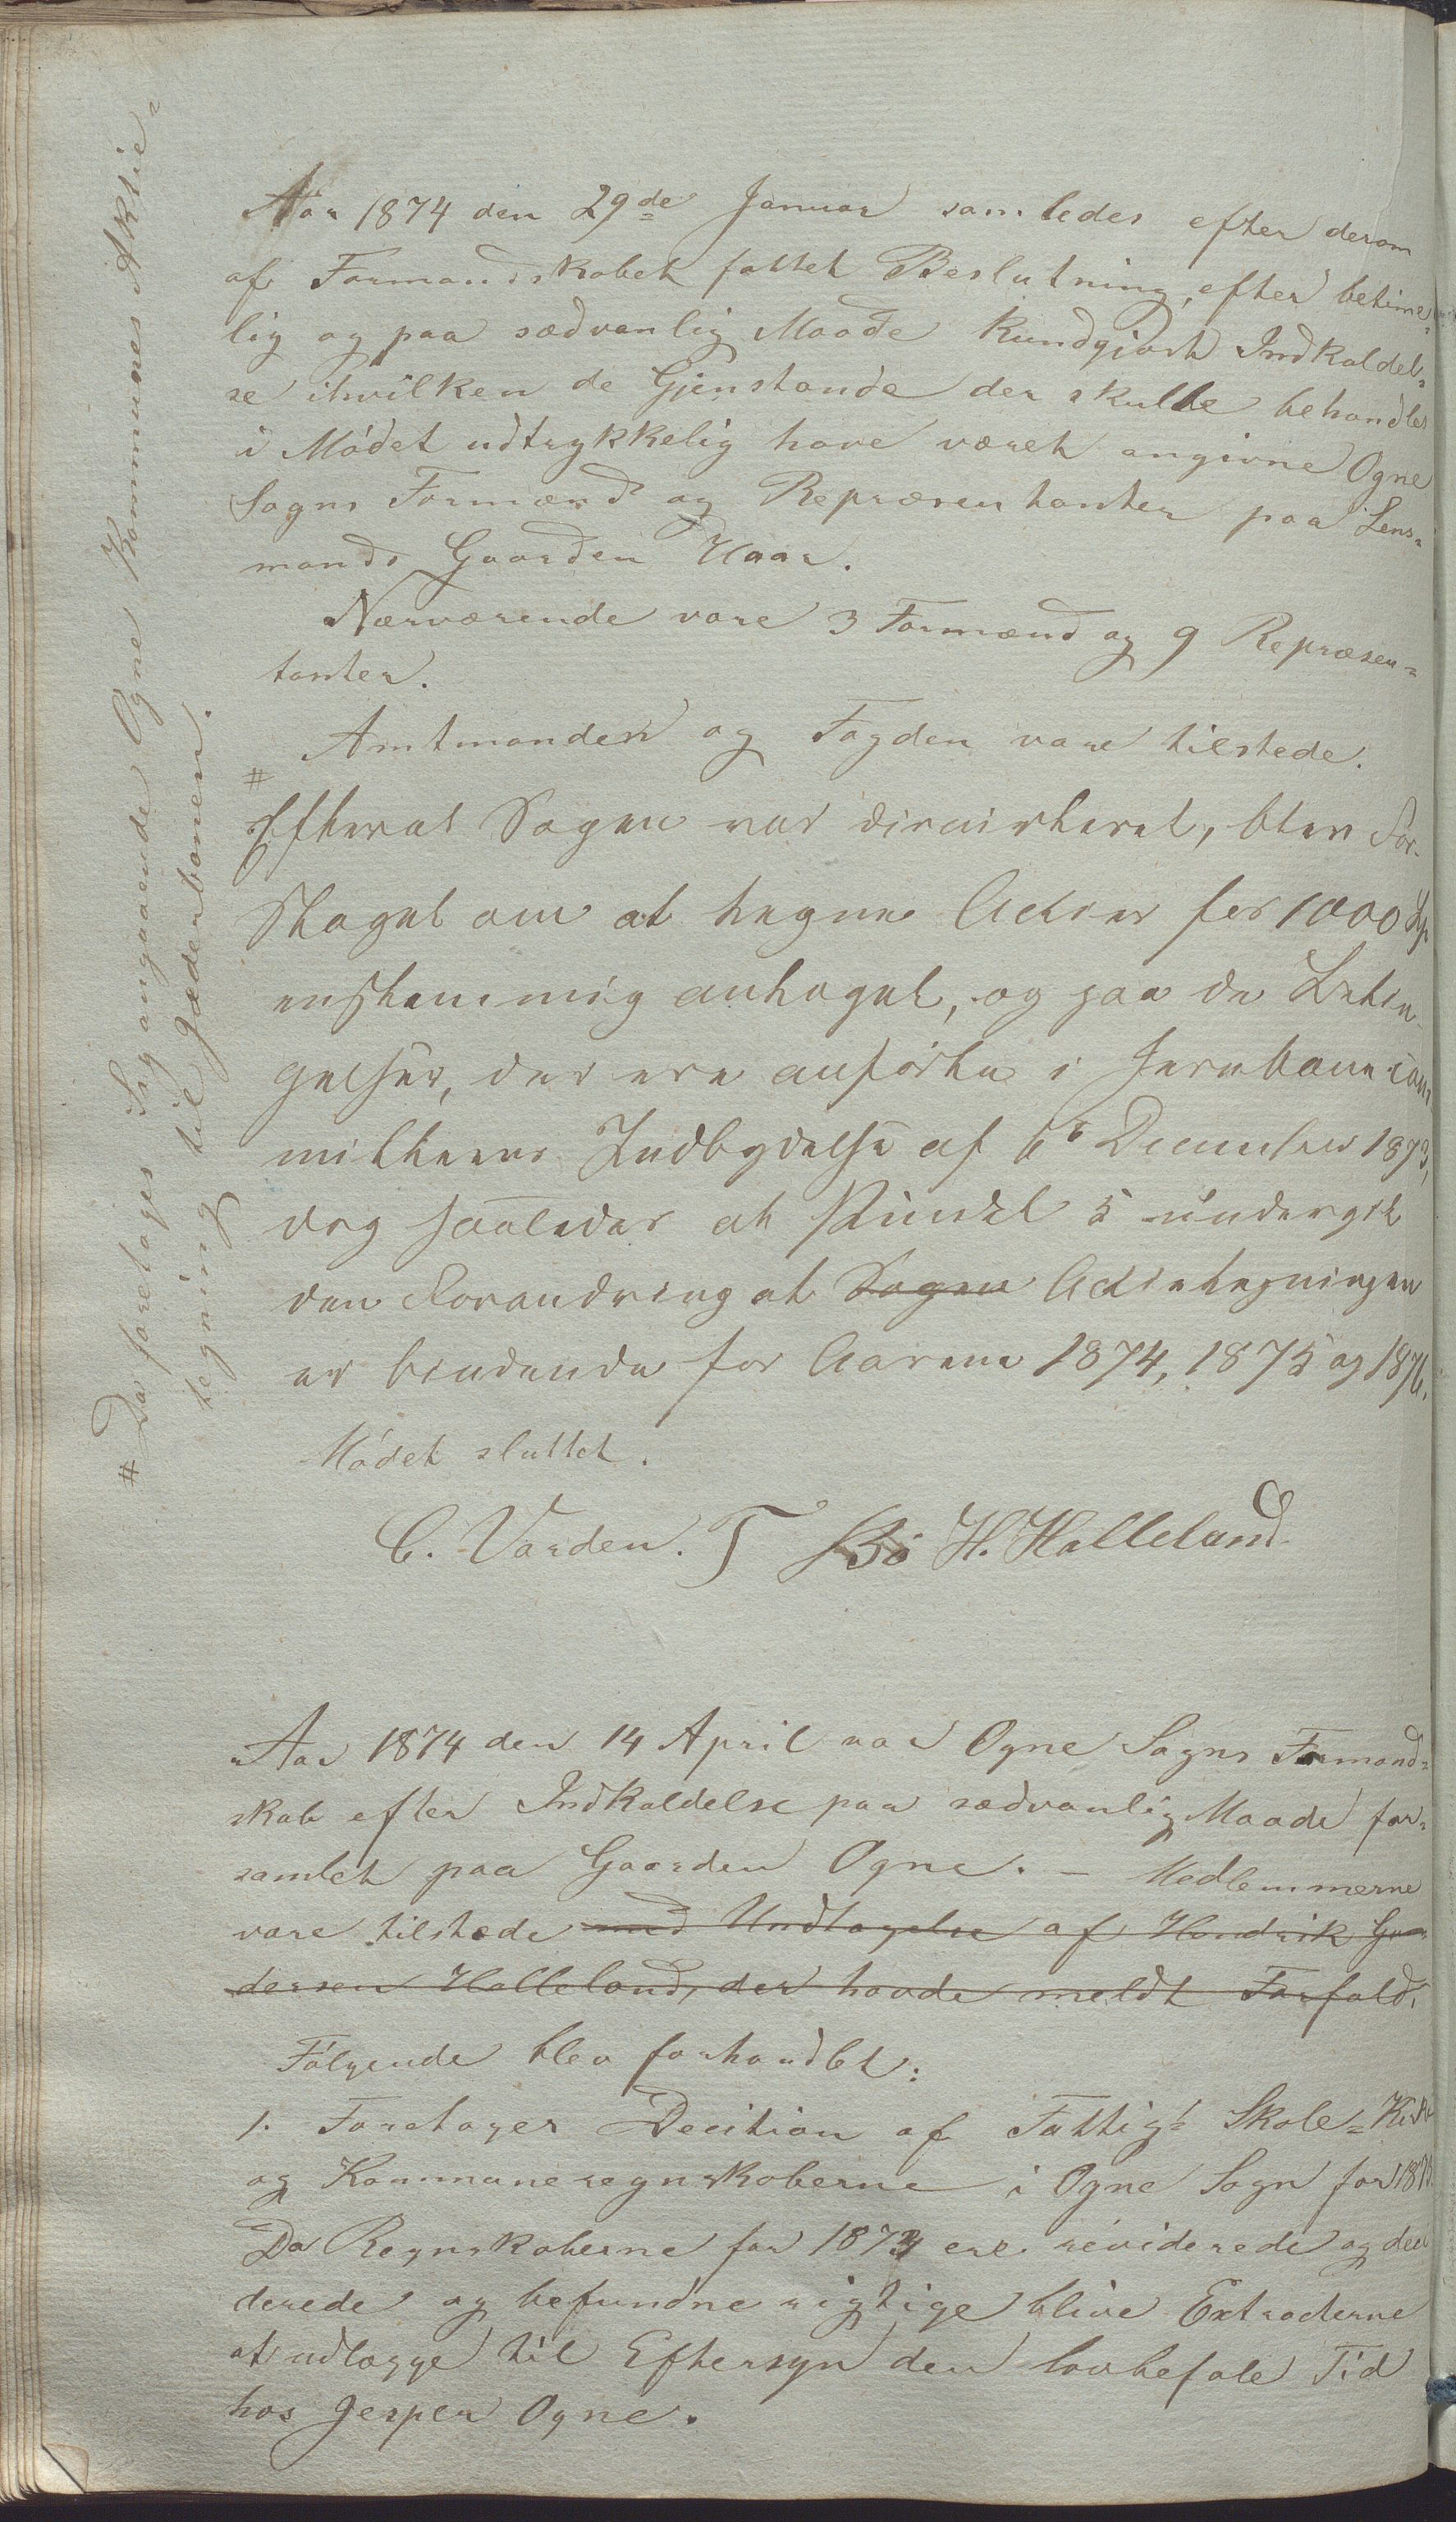 Aar 1874 den 29de Januar samledes efter derom
af Formandskabet fattet Beslutning, efter betime-
lig og paa sædvanlig Maade kundgjort Indkaldel-
se ihvilken de Gjenstande der skulle behandles
i Mødet udtrykkelig have været angivne Ogne
Sogns Formænd og Repræsentanter paa Lens-
mands Gaarden Haar.
Nærværende vare 3 Formænd og 9 Repræsen-
tanter.
Amtmanden og Fogden vare tilstede.
#
Efterat Sagen var discuteret, blev For-
slaget om at tegne Actier for 1000 Sp
enstemmig antaget, og paa de Betin-
gelser, der ere anførte i Jernbanecom
mitteens Indbydelse af 6 December 1873,
dog saaledes at Punct 5 undergik
den Forandring at Sagen Actietegningen
er bindende for Aarene 1874, 1875 og 1876.
Mødet sluttet.
C. Varden. T Bø H. Halleland
# Da foretages Sag angaaende Ogne Kommunes Aktie-
tegning til Jæderbanen.
Aar 1874 den 14 April var Ogne Sogns Formand-
skab efter Indkaldelse paa sædvanlig Maade for-
samlet paa Gaarden Ogne. - Medlemmerne
vare tilstede med Undtagelse af Hendrik Gun
dersen Halleland, der havde meldt Forfald.
Følgende blev forhandlet:
1. Foretages Decition af Fattig- Skole- Kirke
og Kommuneregnskaberne i Ogne Sogn for 1873
Da Regnskaberne for 1873 ere reviderede og deci
derede og befundne rigtige blive Extracterne
at udlægge til Eftersyn den lovbefale Tid
hos Jesper Ogne.